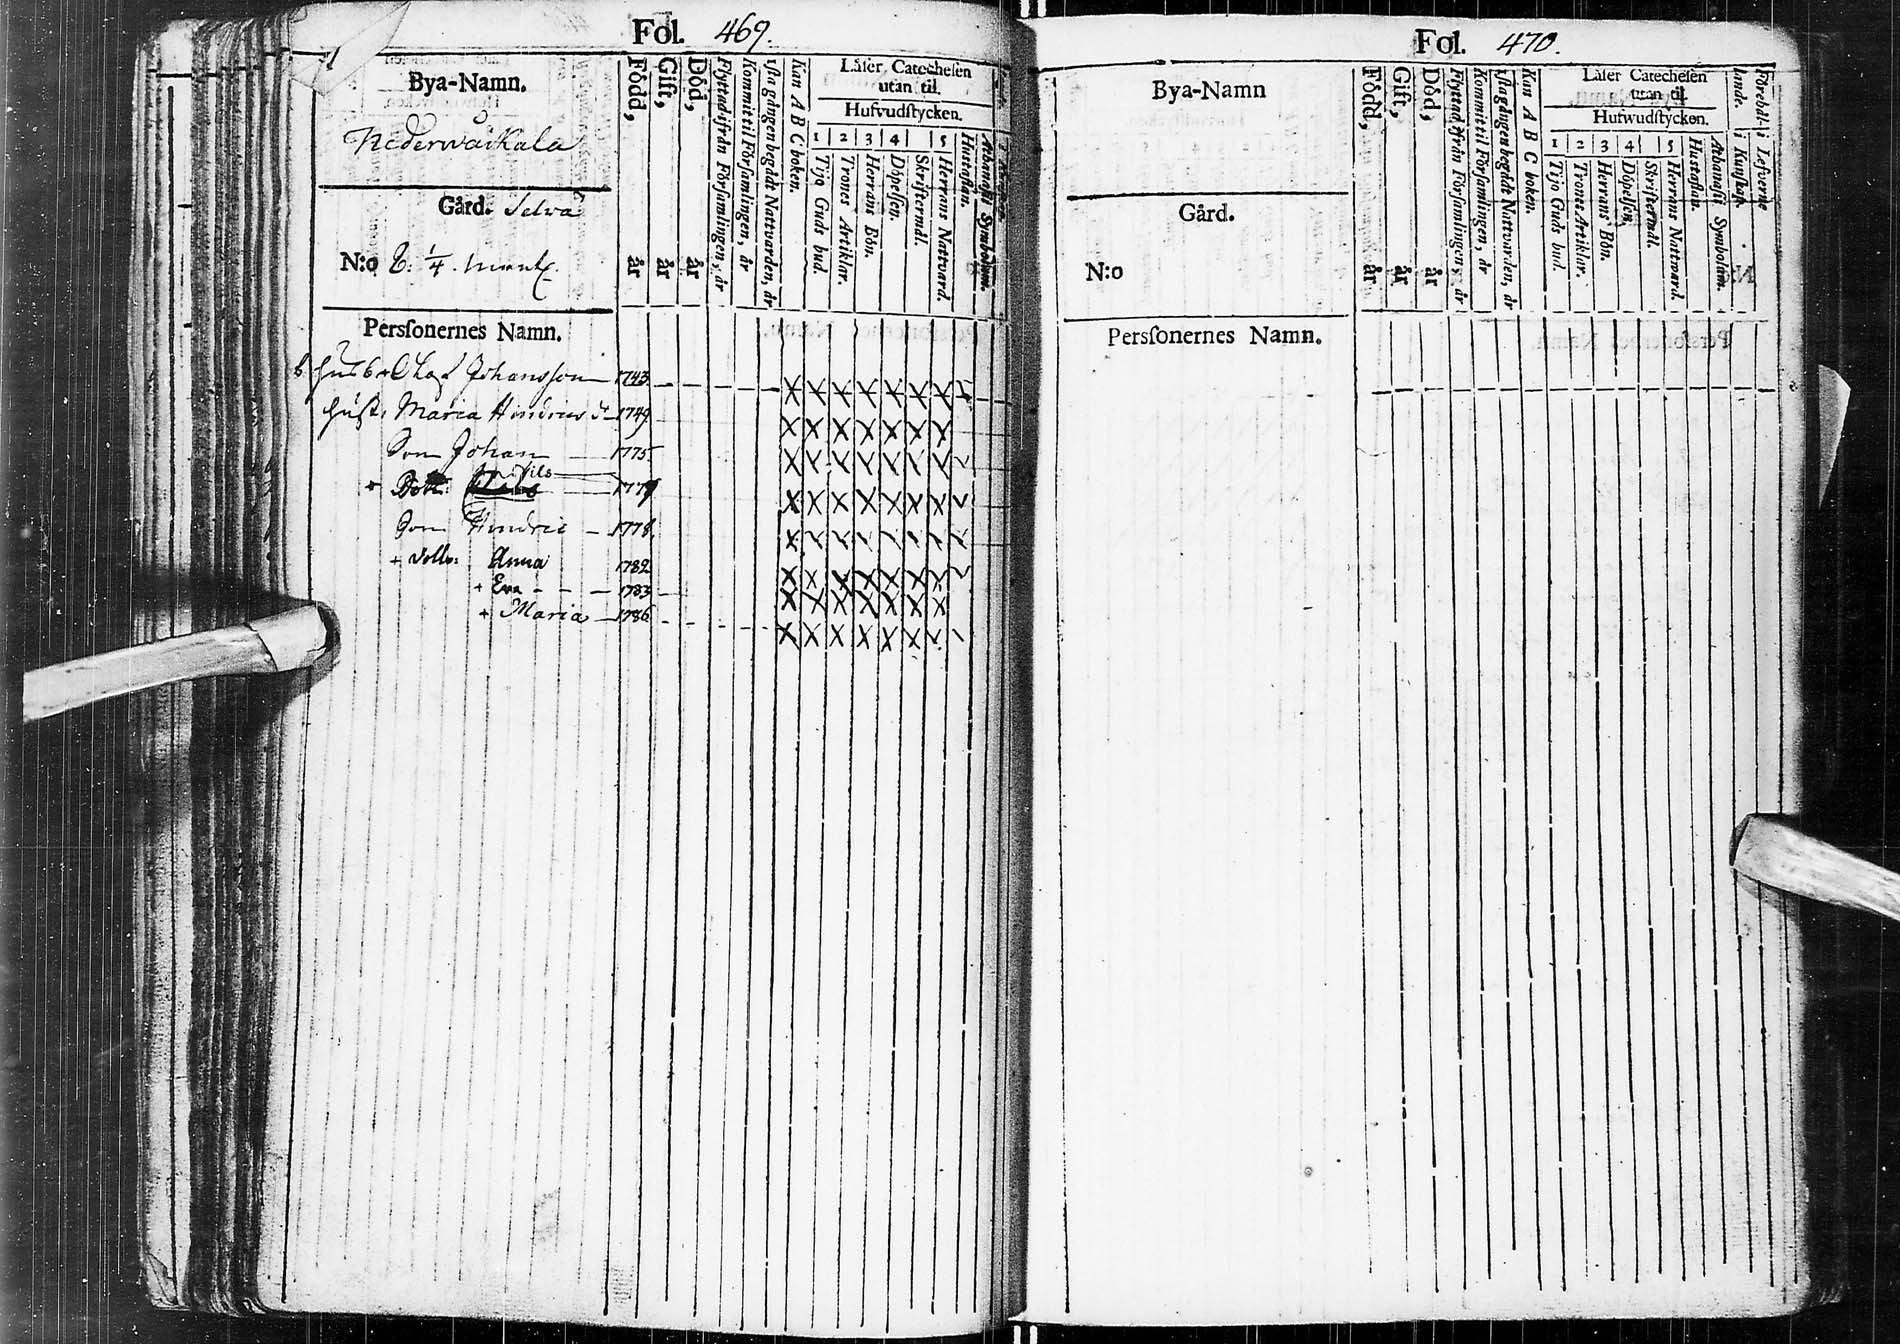 Fol. 469.
Bya-Namn.
Nederwäikala
Gård. Selvä
N:o 8. 1/4. mantl.
Född, år
Gift, år
Död, år
Flyttad ifrån Församlingen, år
Kommit til Församlingen, år
1sta gången begådt Nattvarden, år
Kan A B C boken.
Läser Catechesen
utan til.
Hufvudstycken.
1 2 3 4 5
Tijo Guds bud.
Trones Artiklar.
Herrans Bön.
Döpelsen.
Skriftermål.
Herrans Nattvard.
Hustaflan.
Athanasii Symbolum.
Personernes Namn.
Johansson 1743
hust. Maria Hindrics dr 1749
Son Johan 1775
Dott. 1779
Son Hindric 1778.
+ Dottr: Anna 1782
+ Eva - - - 1783
+ Maria 1786
Fol. 470.
Bya-Namn
Gård.
N:o
Född, år
Gift, år
Död, år
Flyttad ifrån Församlingen, år
Kommit til Församlingen, år
1sta gången begådt Nattvarden, år
Kan A B C boken.
Läser Catechesen
utan til.
Hufwudstycken.
1 2 3 4 5
Tijo Guds bud.
Trones Artiklar.
Herrans Bön.
Döpelsen.
Skriftermål.
Herrans Natward.
Hustaflan.
Athanasii Symbolum.
Förebål-
lande. i Kunskap.
i Lefverne
Personernes Namn.